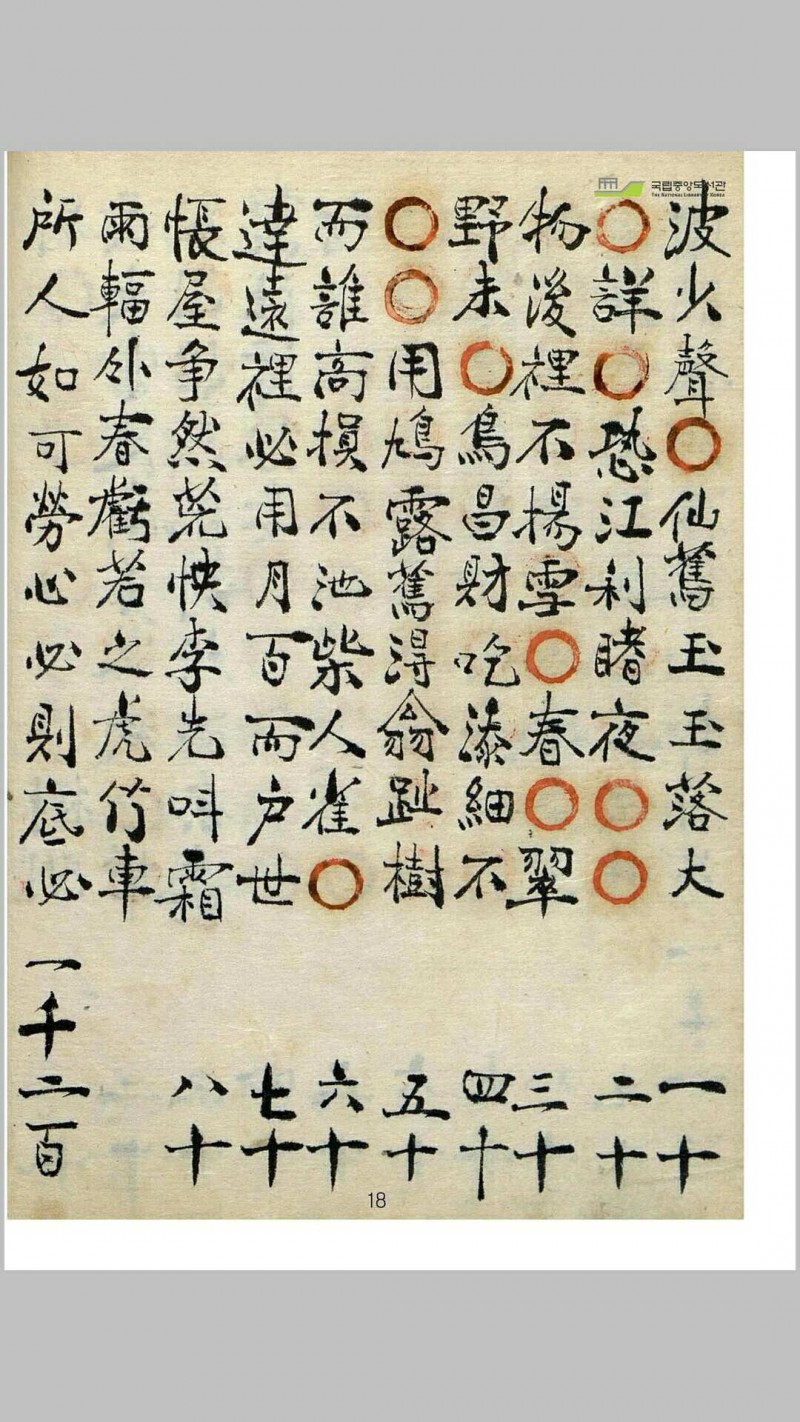 국립중앙도서관
THE NATIONAL LIBRARY OF KOREA
波少聲○仙舊玉玉落大 一十
○詳○恐江利睹夜○○ 二十
物後裡不揚雪○春○翠 三十
野未○鳥昌財吃添細不 四十
○○用鳩露舊得翁趾樹 五十
而誰高損不池柴人雀○ 六十
達遠裡必用月百而户世 七十
悵屋争然蕘怏李光呌霜 八十
兩輻外春虧若之虎竹車
所人如可勞心必則底必 一千二百
18